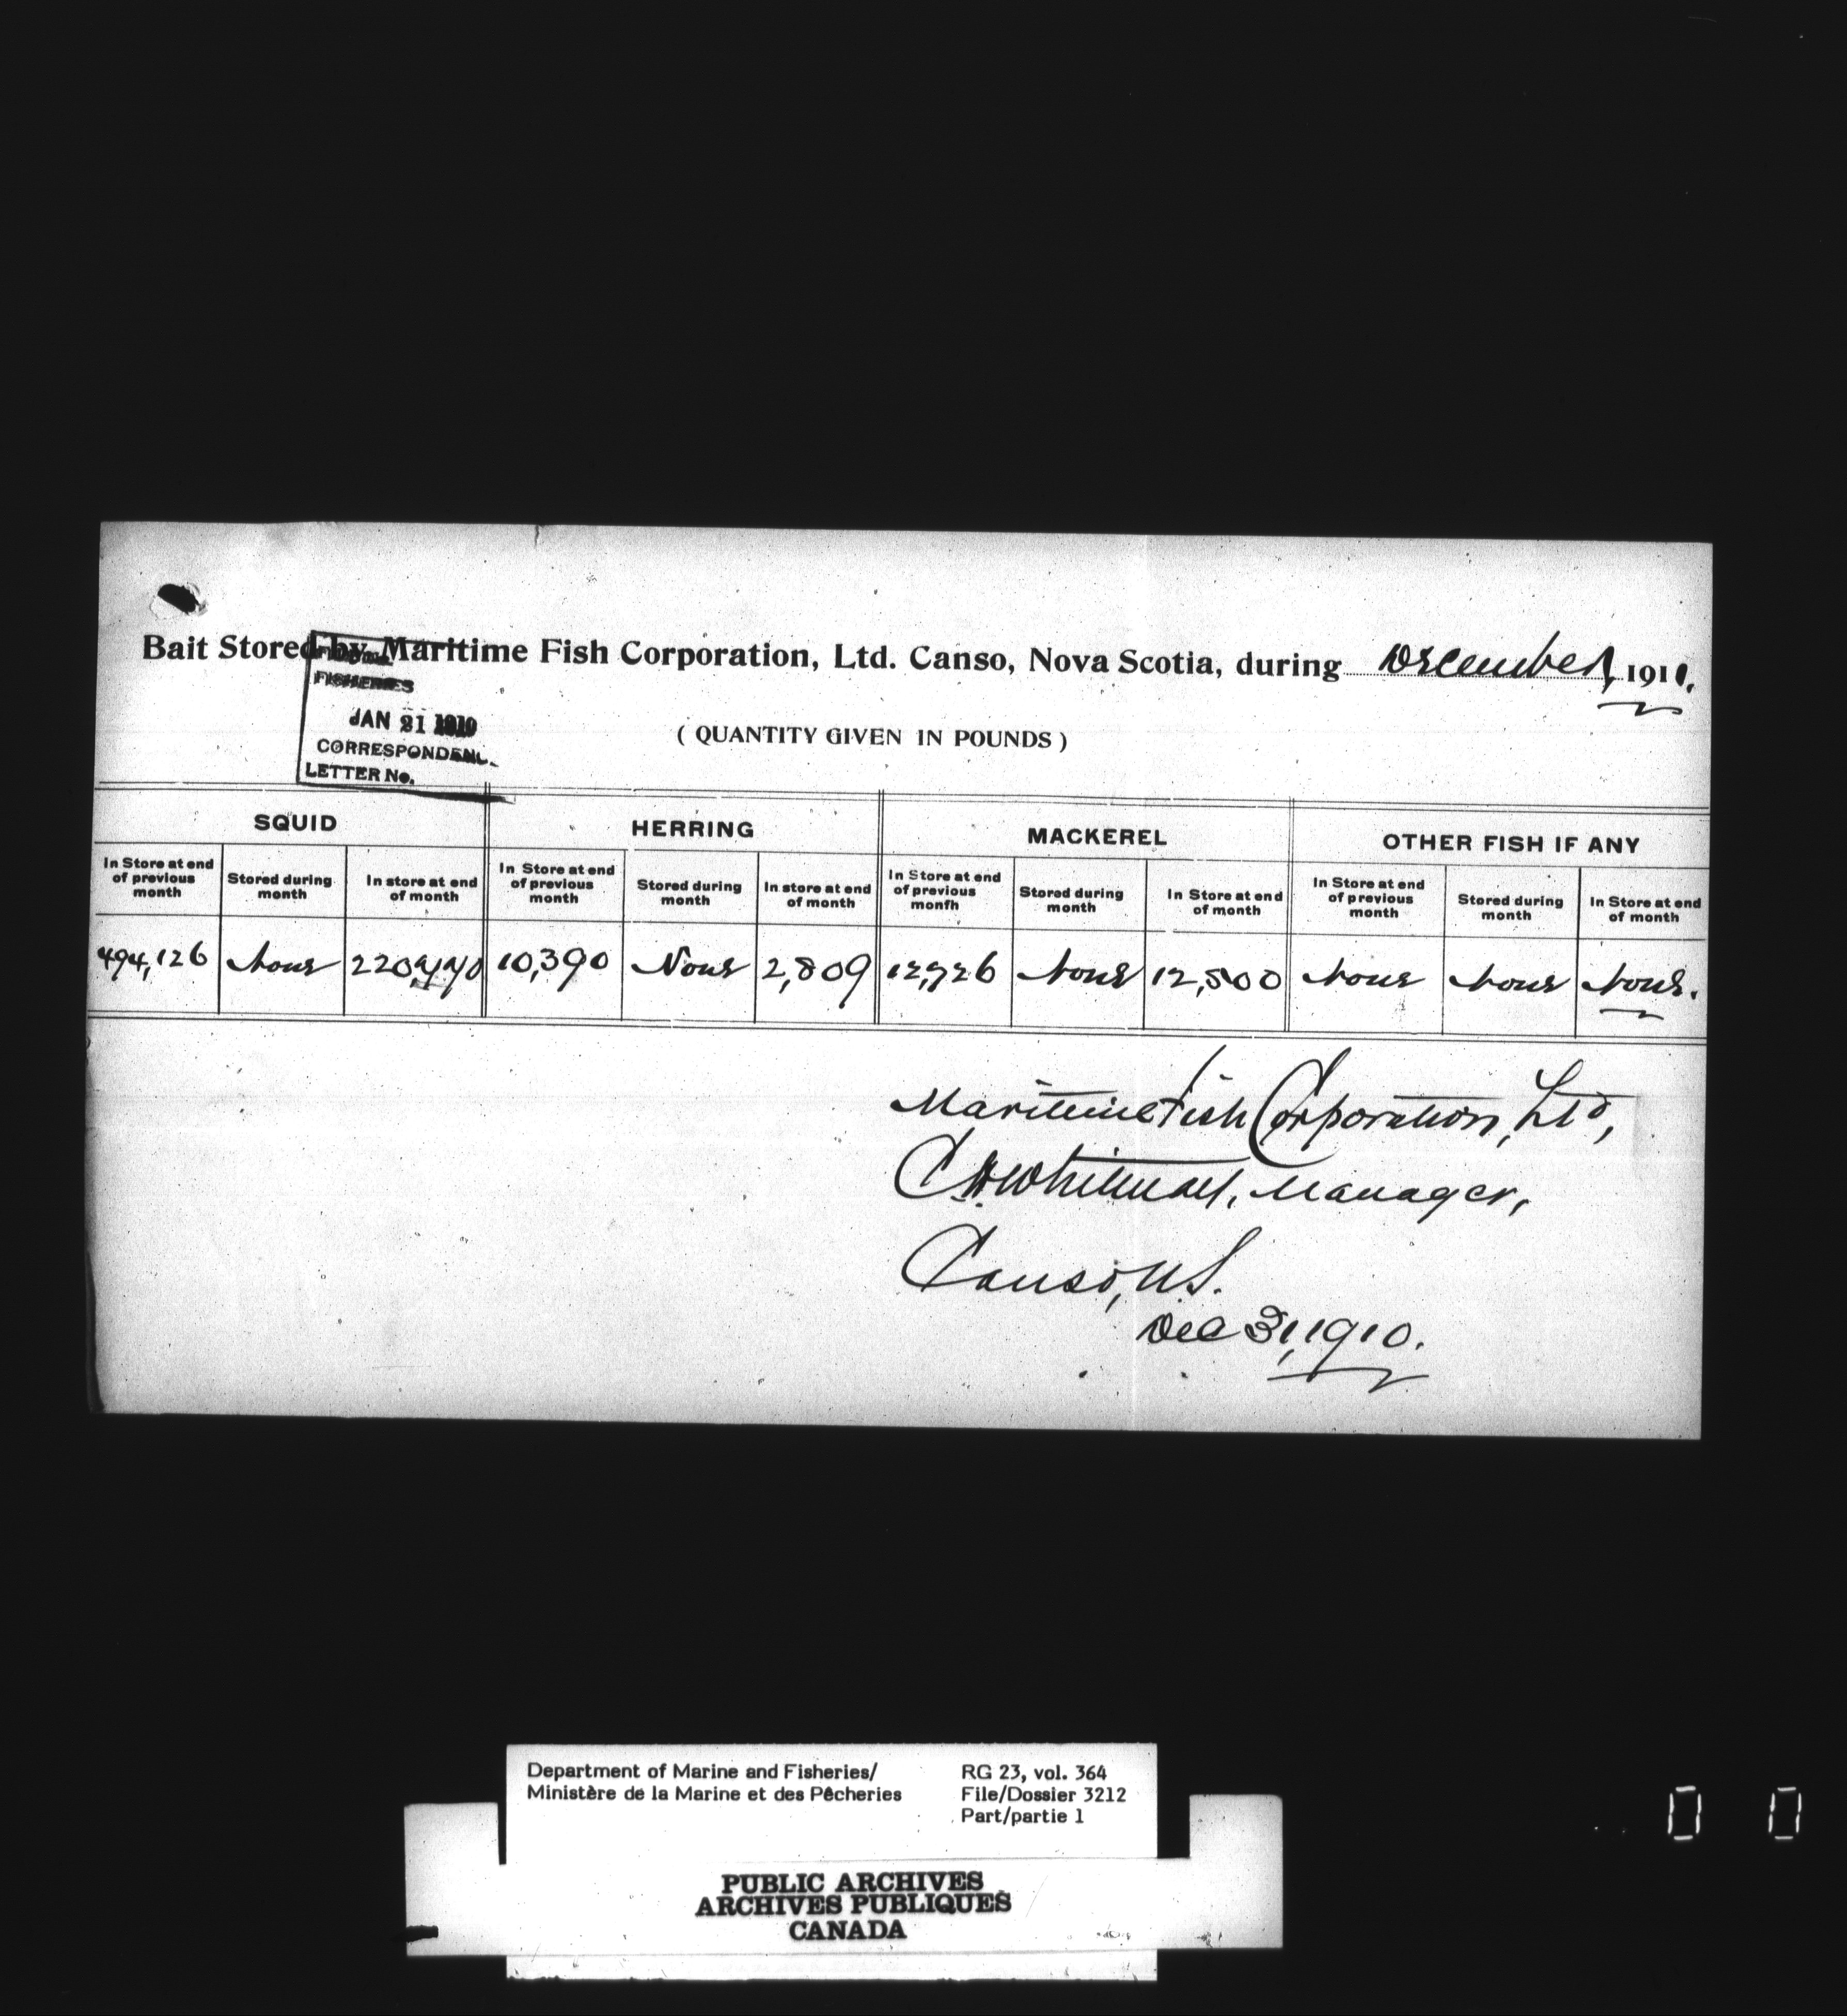 Bait Stored by Maritime Fish Corporation, Ltd. Canso, Nova Scotia, during December, 1910.
FISHERIES
JAN 21 1910
CORRESPONDENC
LETTER No.
( QUANTITY GIVEN IN POUNDS )
SQUID HERRING MACKEREL OTHER FISH IF ANY
In Store at end of previous month Stored during month In store at end of month In Store at end of previous month Stored during month In store at end of month In Store at end of previous monfh Stored during month In Store at end of month In Store at end of previous month Stored during month In Store at end of month
494,126 None 10,390 None 2,809 12,726 None 12,500 None None None.
Maritime Fish Corporation, Ltd,
C H Whitman, Manager,
Canso, N.S.
Dec 31, 1910.
Department of Marine and Fisheries/ RG 23, vol. 364
Ministère de la Marine et des Pêcheries File/Dossier 3212
Part/partie 1
PUBLIC ARCHIVES
ARCHIVES PUBLIQUES
CANADA
0 0